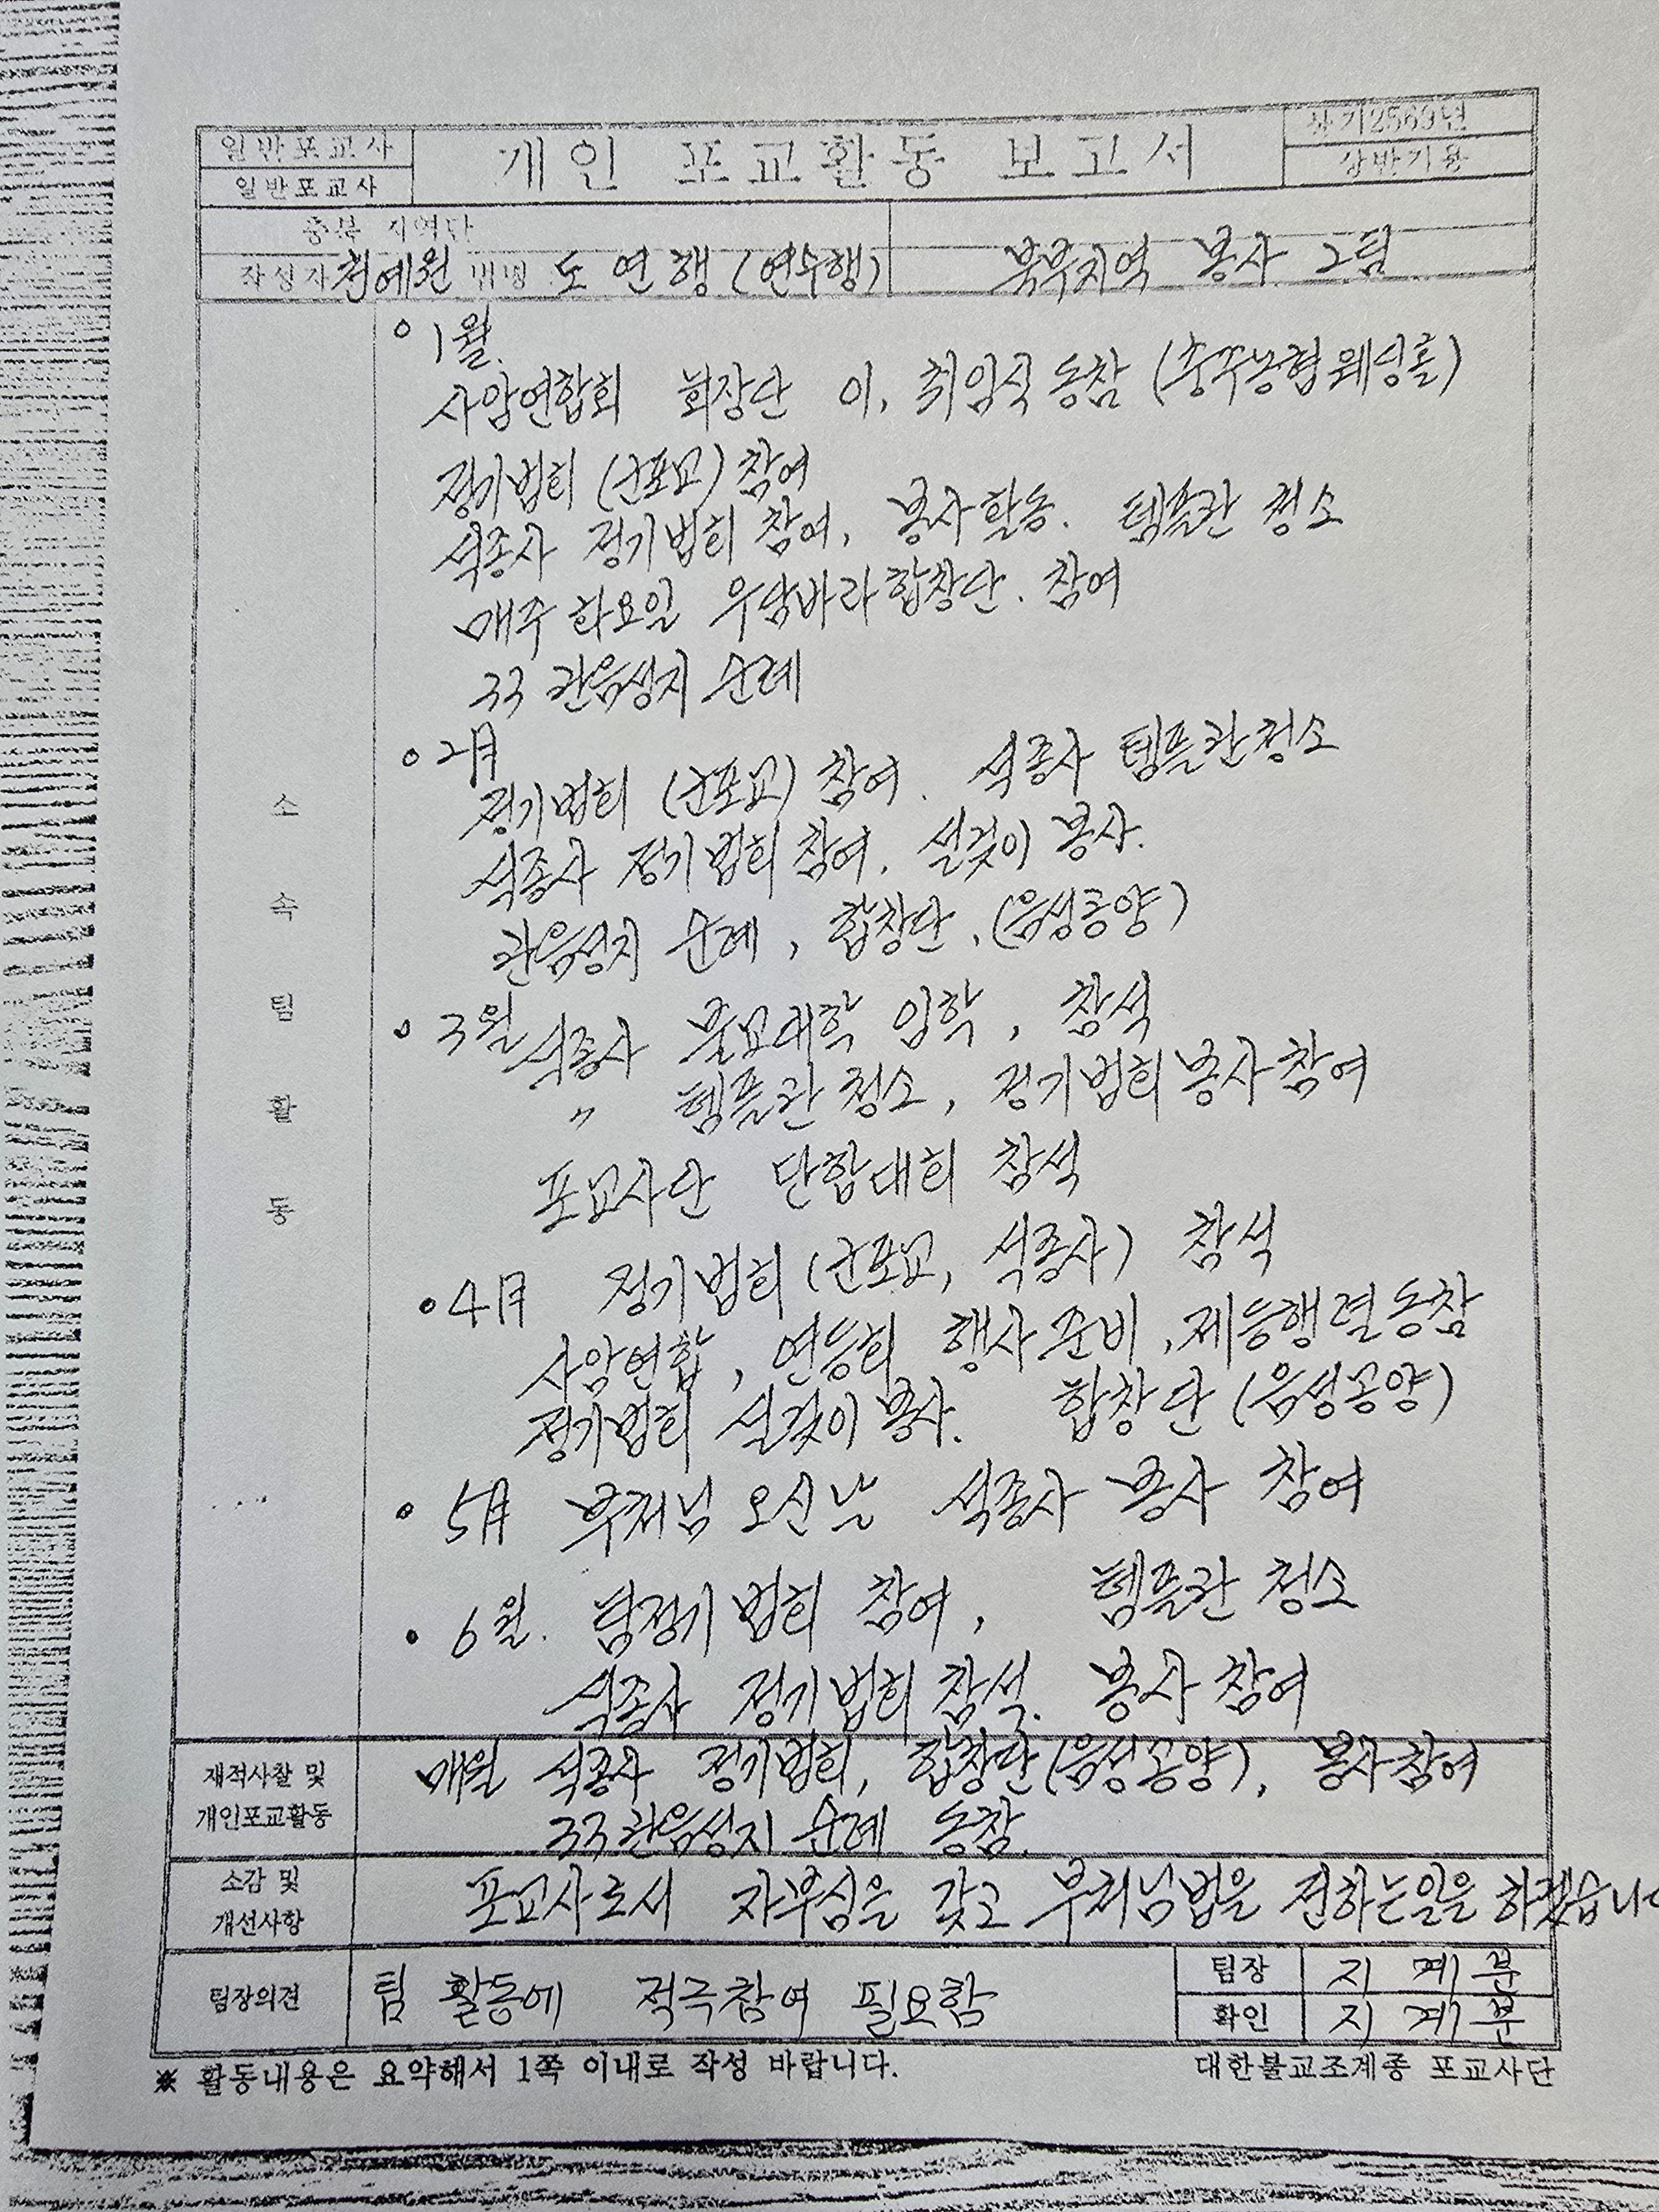 일반포교사
일반포교사
개인 포교활동 보고서
불기2569년
상반기용
충북 지역단
작성자 천예원 법명 도연행(연수행)
북부지역 봉사 2팀
소속팀활동
1월.
사암연합회 회장단 이, 취임식 동참 (충주농협웨딩홀)
정기법회 (군포교) 참여
석종사 정기법회 참여, 봉사활동. 템플관 청소
매주 화요일 우담바라합창단. 참여
33 관음성지 순례
2月
정기법회 (군포교) 참여. 석종사 템플관청소
석종사 정기법회 참여. 설겆이 봉사.
관음성지 순례, 합창단, (음성공양)
3월 석종사 불교대학 입학, 참석
〃 템플관 청소, 정기법회 봉사참여
포교사단 단합대회 참석
4月 정기법회 (군포교, 석종사) 참석
사암연합, 연등회 행사준비, 제등행렬동참
정기법회 설겆이 봉사. 합창단 (음성공양)
5月 부처님 오신날 석종사 봉사 참여
6월. 팀정기법회 참여, 템플관 청소
석종사 정기법회 참석. 봉사 참여
재적사찰 및
개인포교활동
매월 석종사 정기법회, 합창단(음성공양), 봉사참여
33관음성지 순례 동참.
소감 및
개선사항
포교사로서 자부심을 갖고 부처님법을 전하는일을 하겠습니다
팀장의견
팀 활동에 적극참여 필요함
팀장 지계분
확인 지계분
※ 활동내용은 요약해서 1쪽 이내로 작성 바랍니다.
대한불교조계종 포교사단